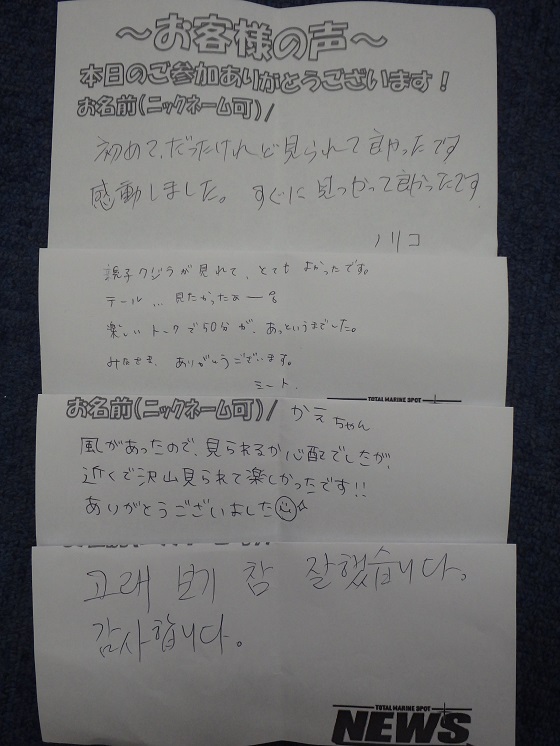 ～お客様の声～
本日のご参加ありがとうございます！
お名前(ニックネーム可)/
初めてだったけれど見られて良かったです
感動しました。すぐに見つかって良かったです
ノリコ
親子クジラが見れて、とてもよかったです。
テール... 見たかったぁー。
楽しいトークで50分が、あっというまでした。
みなさま、ありがとうございます。
ミート.
TOTAL MARINE SPOT
お名前(ニックネーム可)/ かえちゃん
風があったので、見られるか心配でしたが、
近くで沢山見られて楽しかったです!!
ありがとうございました
고래 보기 참 잘했습니다.
감사합니다.
TOTAL MARINE SPOT
NEWS